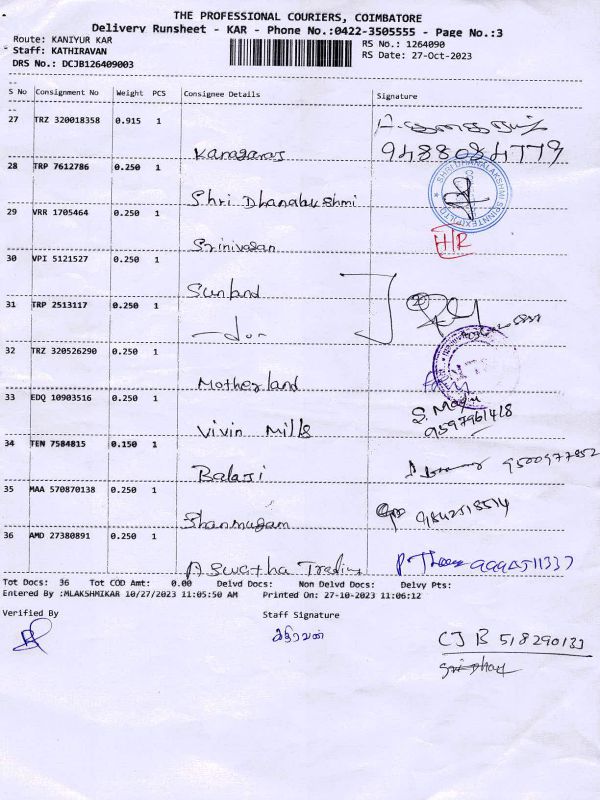 THE PROFESSIONAL COURIERS, COIMBATORE
Delivery Runsheet - KAR - Phone No.:0422-3505555 - Page No.:3
Route: KANIYUR KAR
RS No.: 1264090
Staff: KATHIRAVAN
RS Date: 27-Oct-2023
DRS No.: DCJB126409003
S No Consignment No Weight PCS Consignee Details Signature
27 TRZ 320018358 0.915 1
Kanagaraj
9488084779
28 TRP 7612786 0.250 1
Shri Dhanalakshmi
29 VRR 1705464 0.250 1
Srinivasan
H/R
30 VPI 5121527 0.250 1
Sunland
31 TRP 2513117 0.250 1
32 TRZ 320526290 0.250 1
Motherland
33 EDQ 10903516 0.250 1
Vivin Mills
9597961418
34 TEN 7584815 0.150 1
Balaji
9500977852
35 MAA 570870138 0.250 1
Shanmugam
9842518514
36 AMD 27380891 0.250 1
Aswatha Trading
Tot Docs: 36 Tot COD Amt: 0.00 Delvd Docs: Non Delvd Docs: Delvy Pts:
Entered By :MLAKSHMIKAR 10/27/2023 11:05:50 AM Printed On: 27-10-2023 11:06:12
Verified By Staff Signature
கதிரவன்
CJB 518290133